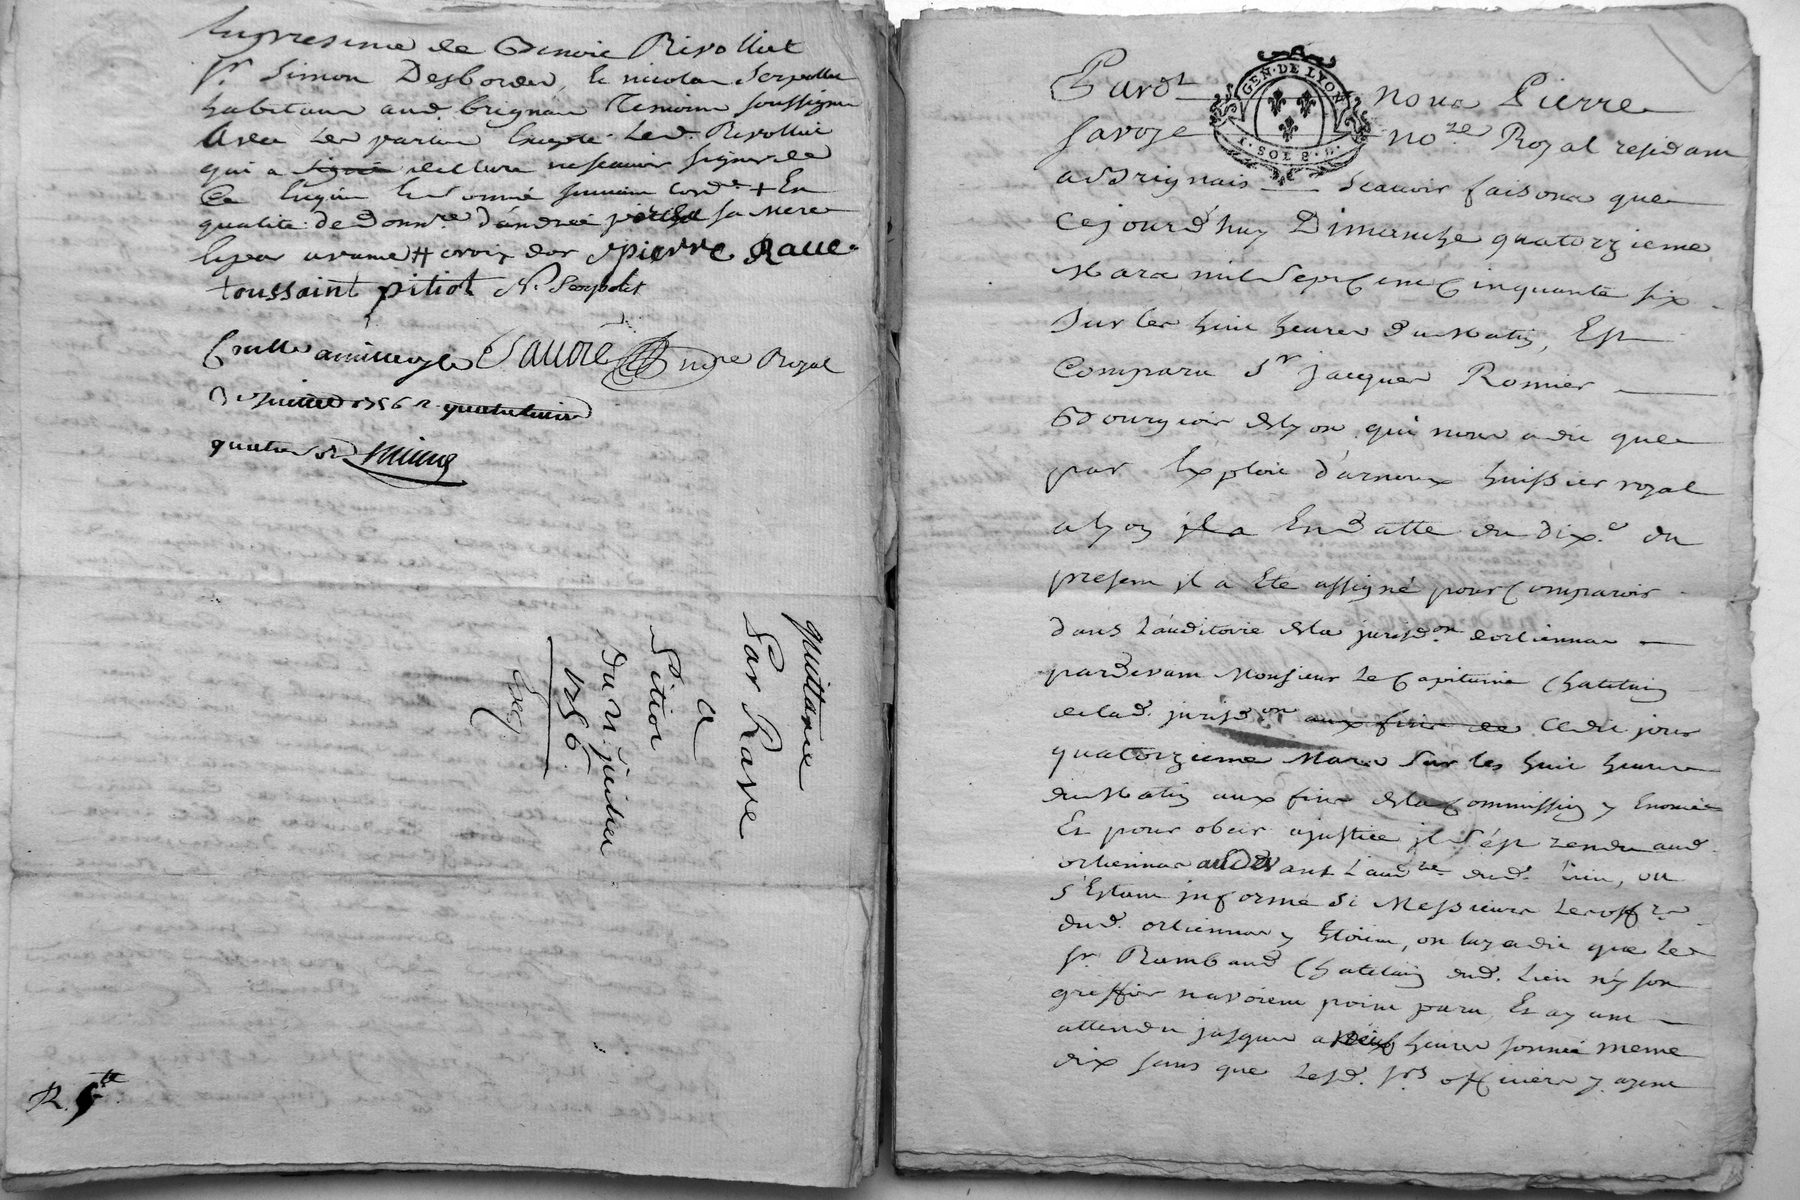 En presence de Benoit Rivollier
Sr. Simon Desbordes, & nicolas Serpollet
habitans aud. brignais Temoins soussignés
Avec les parties Excepté Led. Rivollier
qui a declaré ne scavoir signer de
Ce Enquis
qualité de Donre. d'andrée sa Mere
croix dor pierre Raue
toussaint pitiot N. Serpolet
Controllé a Sauoie nore Royal
1756
quatre
quittance
Par Rave
a
Pitiot
Du juillet
1756
Exp
R. 5te.
GEN. DE LYON
1. SOL 8. D.
Pardt nous Pierre
Savoye nore Royal residant
a Brignais Scavoir faisons que
Cejourd'huy Dimanche quatorzieme
Mars mil Sept Cent Cinquante Six
Sur les huit heures du Matin, Est
Comparu Sr jacques Romier
Bourgeois de Lyon qui nous a dit que
par Exploit d'arnoux huissier royal
a Lyon il a En Datte du dixe. du
present il a Eté assigné pour Comparoir
dans L'auditoire de la jurisdon. d'orliennas
pardevant Monsieur Le Capitaine Chatelain
de lad. jurisdon aux fins de Cedit jour
quatorzieme Mars Sur les huit heures
du Matin aux fins de la Commission y Enoncée
Et pour obeir a justice il S'est rendu aud.
orliennas au Devant L'audre. dud. Lieu, ou
s'Estant informé Si Messieurs Les offrs.
dud. orliennas y Etoient, on luy a dit que Le
Sr. Rambaud Chatelain dud. Lieu n'y son
greffier n'avoient point paru Et ayant
attendu jusques a neuf heures sonnée meme
dix sans que Lesd. Srs officiers y ayent